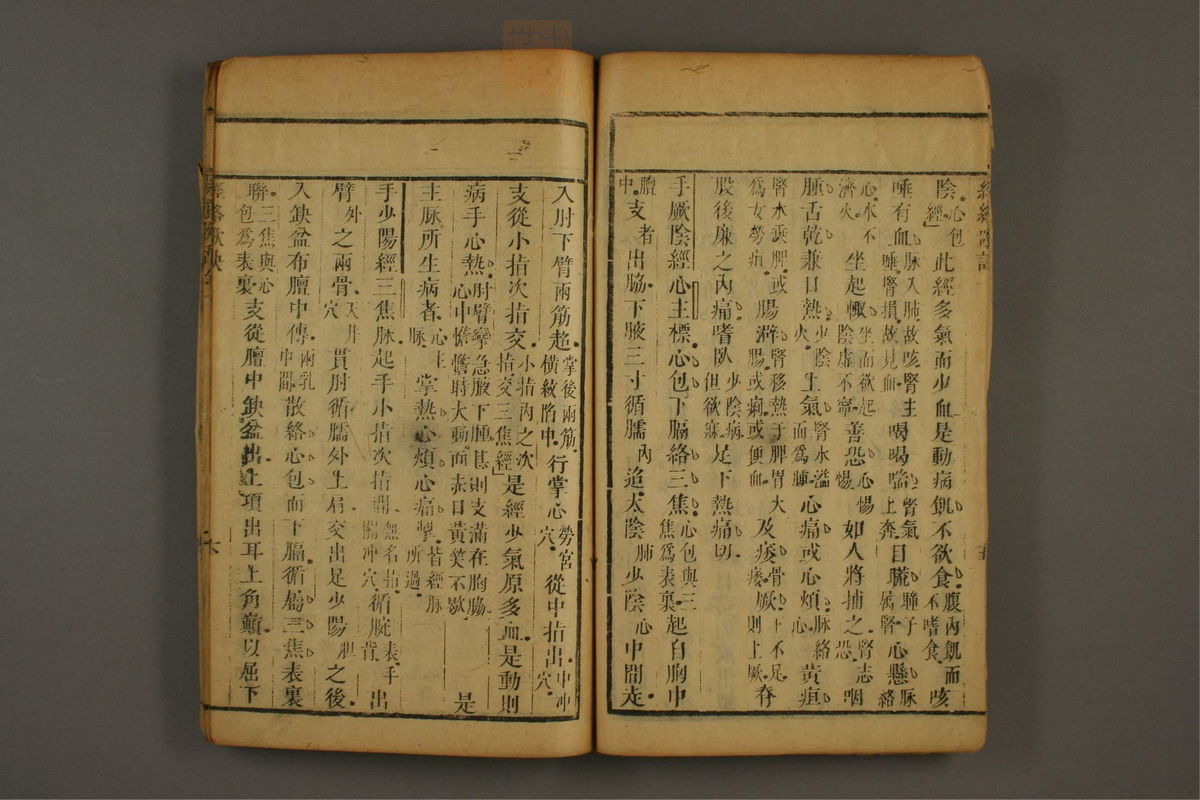 陰心包經此經多氣而少血是動病飢不欲食腹內飢而不嗜食咳
唾有血脉入肺故咳腎主唾腎損故見血喝喝喘腎氣上奔目䀮瞳子屬腎心懸脉絡
心水不濟火坐起輙坐而欲起陰虛不寧善恐心惕惕如人將捕之腎志恐咽
腫舌乾兼口熱少陰火上氣腎水溢而爲腫心痛或心煩脉絡心黃疸
腎水乘脾或爲女勞疸腸澼腎移熱于脾胃大腸或痢或便血及痿骨痿厥下不足則上厥脊
股後廉之內痛嗜臥少陰病但欲寐足下熱痛切
手厥陰經心主標心包下膈絡三焦心包與三焦爲表裏起自胸中
膻中支者出脇下腋三寸循臑內追太陰肺少陰心中間走
入肘下臂兩筋超掌後兩筋橫紋陷中行掌心勞宮穴從中指出中冲穴
支從小指次指交小指內之次指交三焦經是經少氣原多血是動則
病手心熱肘臂攣急腋下腫甚則支滿在胸脇心中憺憺時大動面赤目黃笑不歇是
主脉所生病者心主脉掌熱心煩心痛掣皆經脉所過
手少陽經三焦脉起手小指次指間無名指關冲穴循腕表手背出
臂外之兩骨天井穴貫肘循臑外上肩交出足少陽胆之後
入缺盆布膻中傳兩乳中間散絡心包而下膈循屬三焦表裏
聯三焦與心包爲表裏支從膻中缺盆出上項出耳上角巔以屈下